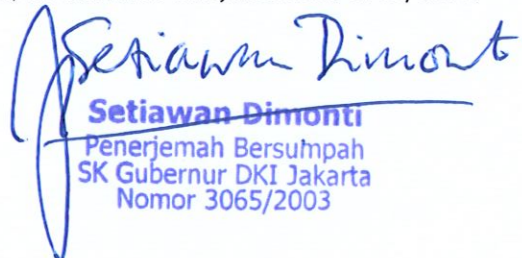 Setiawan Dimont
Setiawan Dimonti
Penerjemah Bersumpah
SK Gubernur DKI Jakarta
Nomor 3065/2003